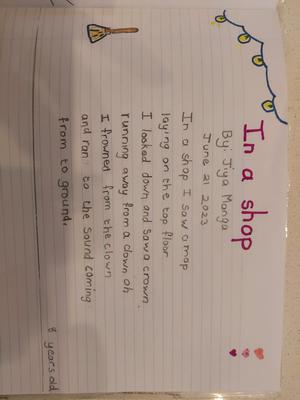 In a shop
By: Jiya Manga
June 21 2023
In a shop I saw a map
laying on the top floor
I looked down and saw a crown
running away from a clown oh
I frowned from the clown
and ran to the sound coming
from to ground.
8 years old